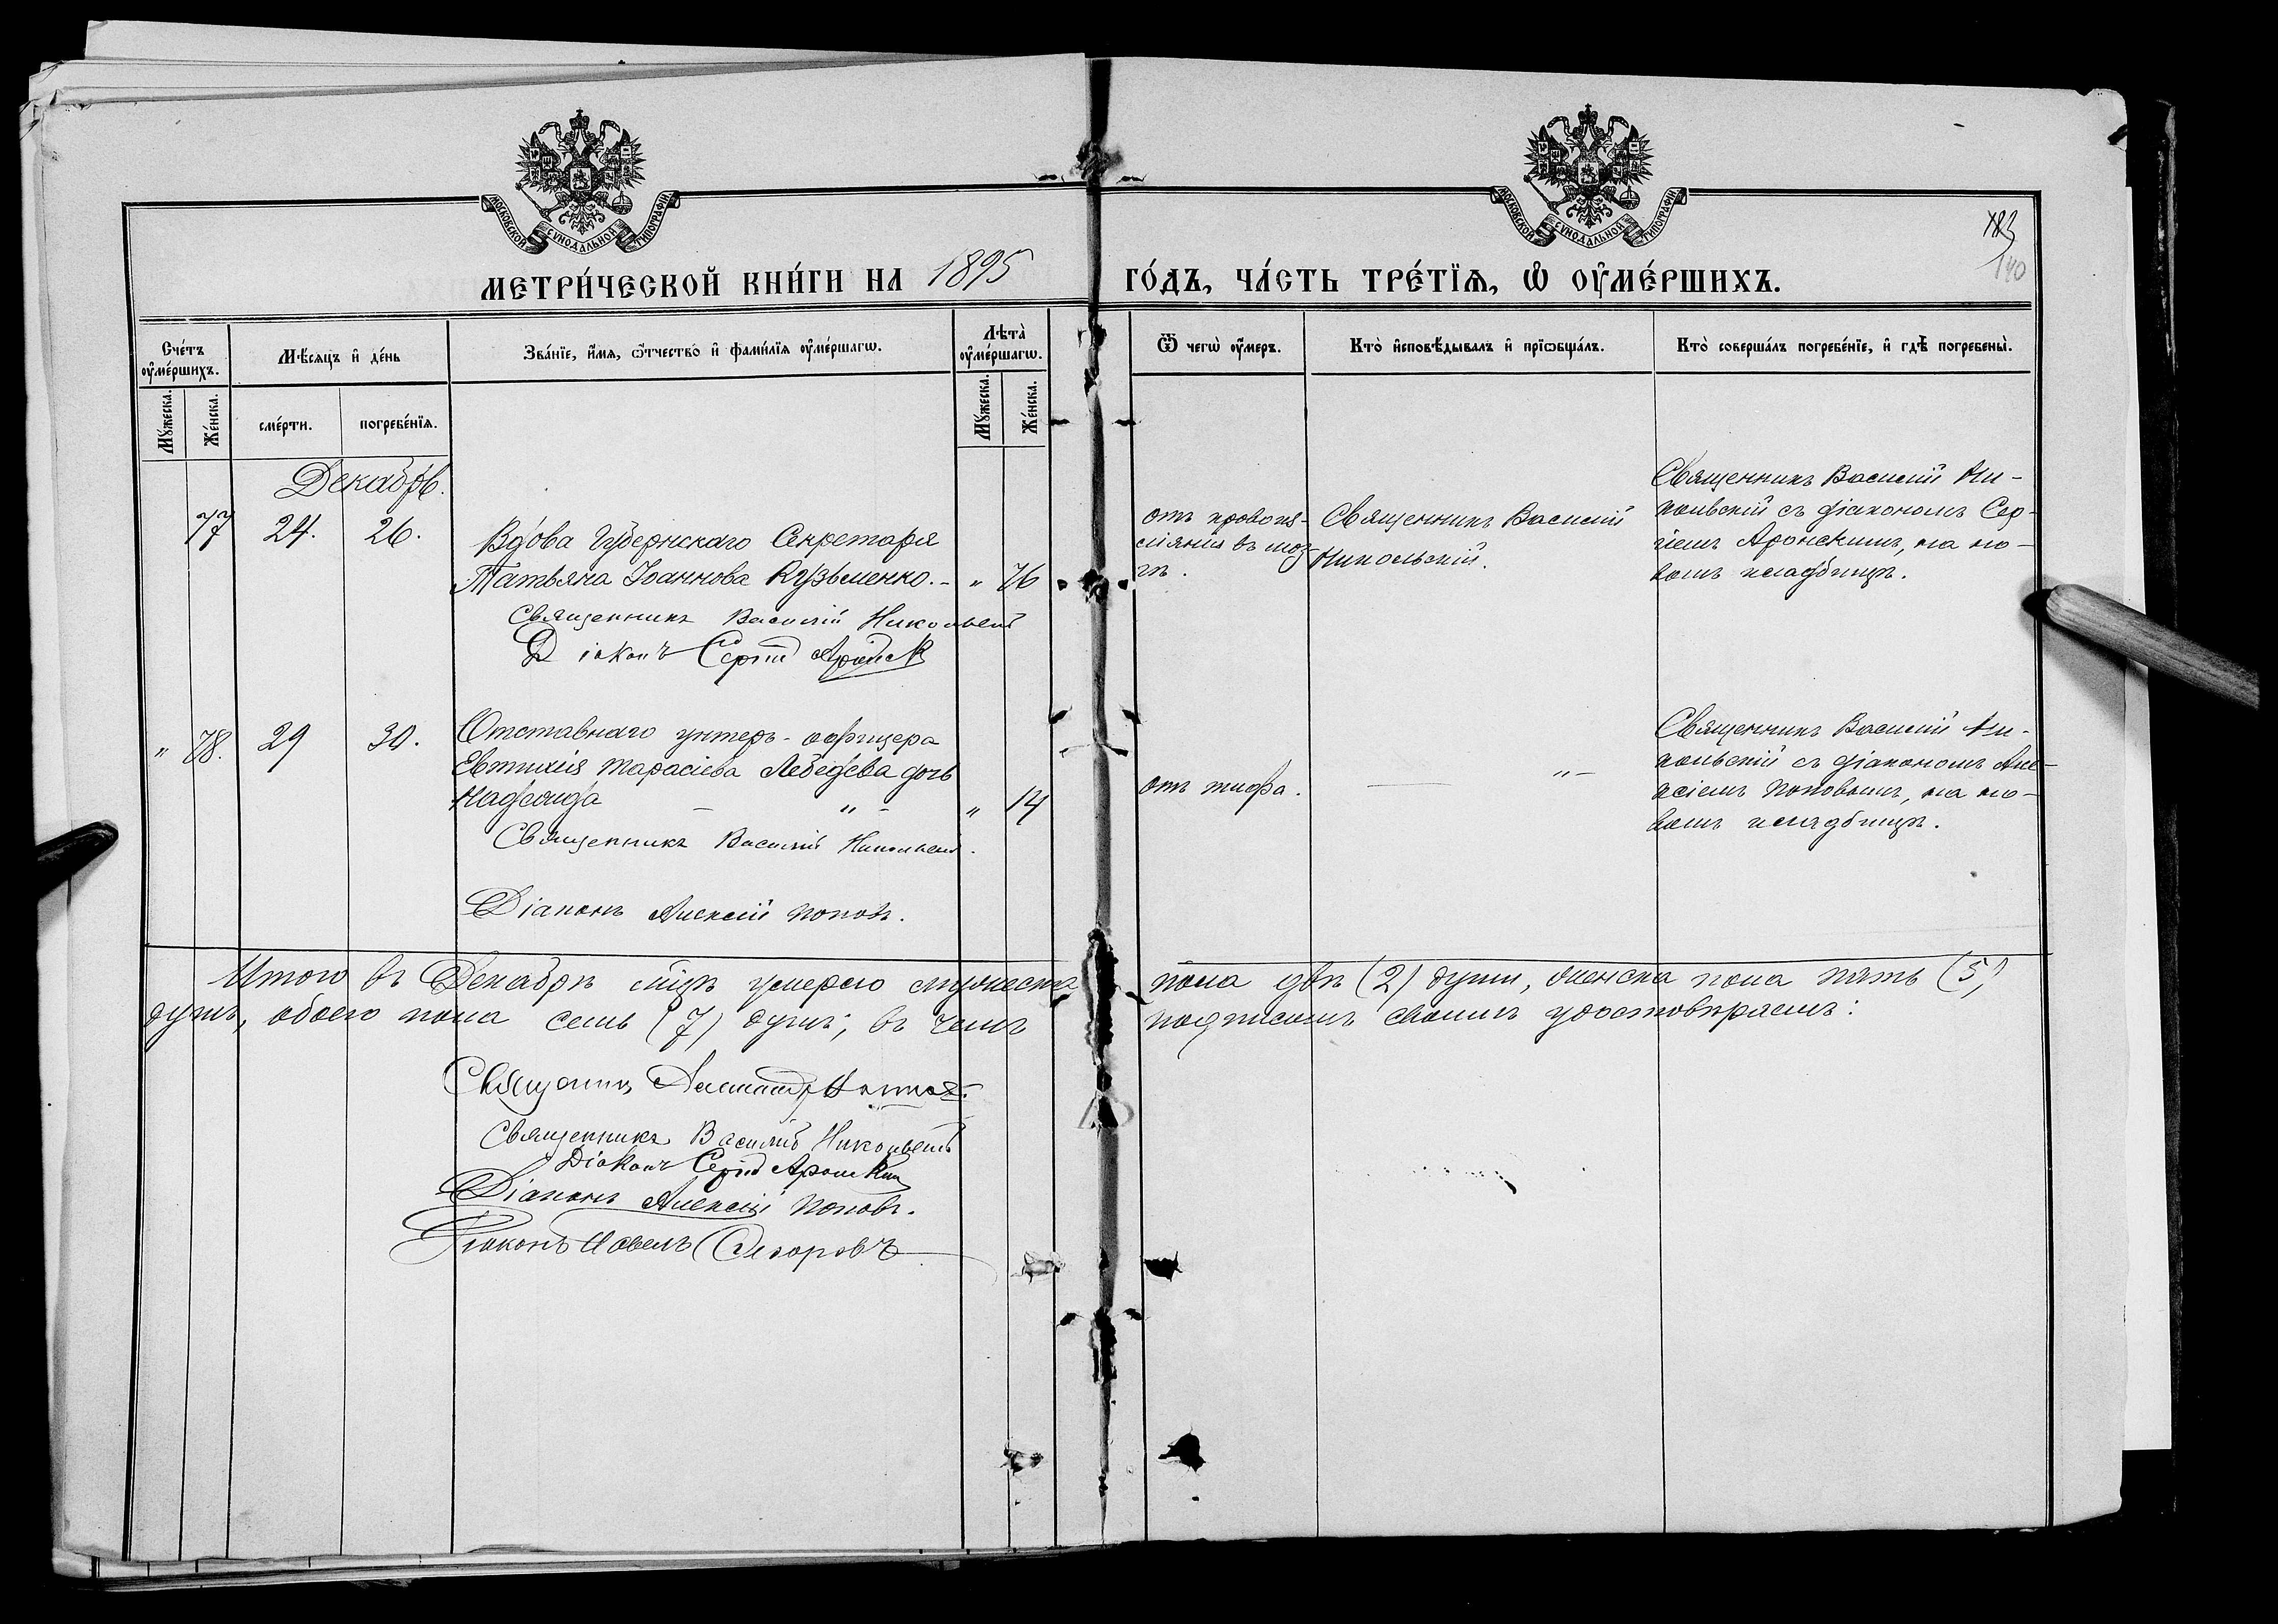 МОСКОВСКОЙ СУНОДАЛЬНОЙ ТИПОГРАФІИ
МОСКОВСКОЙ СУНОДАЛЬНОЙ ТИПОГРАФІИ
140
МЕТРИ́ЧЕСКОЙ КНИ́ГИ НА 1895 ГО́ДЪ, ЧА́СТЬ ТРЕ́ТЇѦ, Ѡ ОУ҆МЕ́РШИХЪ.
Сче́тъ оу҆ме́ршихъ.
Мѣ́сяцъ и҆ де́нь
Зва́нїе, и҆́мѧ, ѻ҆́тчество и҆ фами́лїѧ оу҆ме́ршагѡ.
Лѣта̀ оу҆ме́ршагѡ.
Ѿ чегѡ̀ оу҆́меръ.
Кто̀ и҆сповѣ́дывалъ и҆ прїѡбща́лъ.
Кто̀ соверша́лъ погребе́нїе, и҆ гдѣ̀ погребены̀.
Мꙋ́жеска.
Же́нска.
сме́рти.
погребе́нїѧ.
Мꙋ́жеска.
Же́нска.
Декабрь.
77 24. 26.
Вдова Губернскаго Секретаря
Татьяна Іоаннова Кузьменко. - " 76
Священникъ Василій Никольскій
Діаконъ Сергій Аронск
отъ кровоиз-
ліянія въ моз-
гъ.
Священникъ Василій
Никольскій.
Священникъ Василій Ни-
кольскій съ діакономъ Сер-
гіемъ Аронскимъ, на но-
вомъ кладбищѣ.
" 78. 29 30.
Отставнаго унтеръ-офицера
Евтихія Тарасіева Лебедева дочь
Надежда - " - " 14
Священникъ Василій Никольскій.
Діаконъ Алексій Поповъ.
отъ тифа.
— "-
Священникъ Василій Ни-
кольскій съ діакономъ Але-
ксіемъ Поповымъ, на но-
вомъ кладбищѣ.
Итого въ Декабрѣ м҃цѣ умерло мужеска пола двѣ (2) души, женска пола пять (5)
душъ, обоего пола семь (7) душъ; въ чемъ подписомъ своимъ удостовѣряемъ:
Священникъ
Священникъ Василій Никольскій
Діаконъ Сергій Аронскій
Діаконъ Алексій Поповъ.
Діаконъ Павелъ